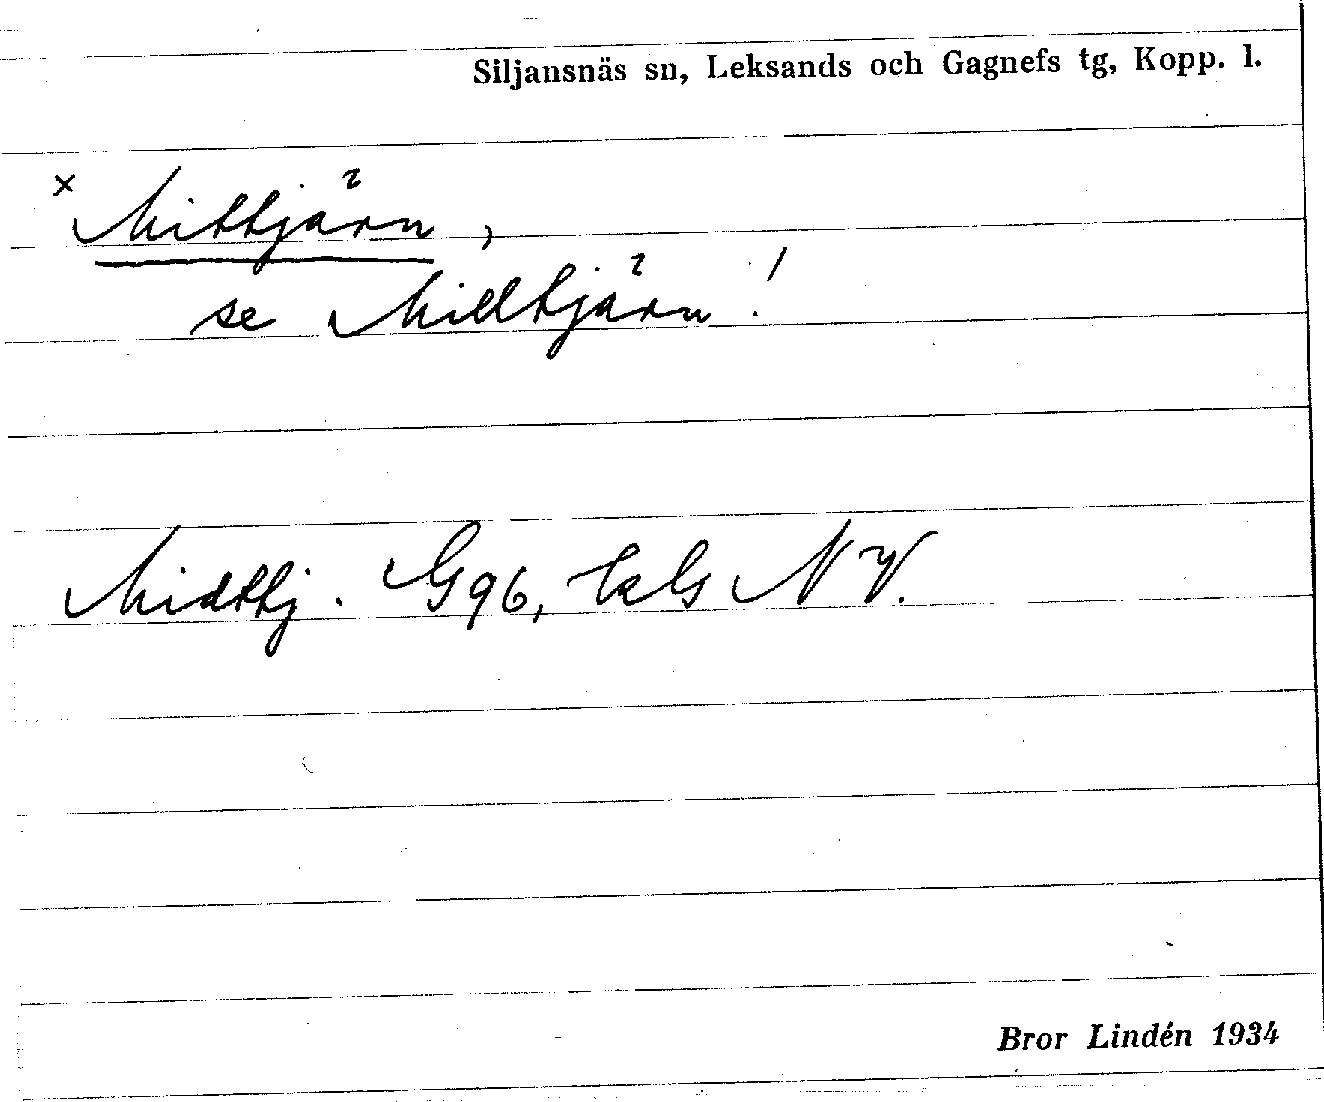 Siljansnäs sn, Leksands och Gagnefs tg, Kopp. l.
× Mittjärn,
se Milltjärn!
Midttj. G96, NV.
Bror Lindén 1934